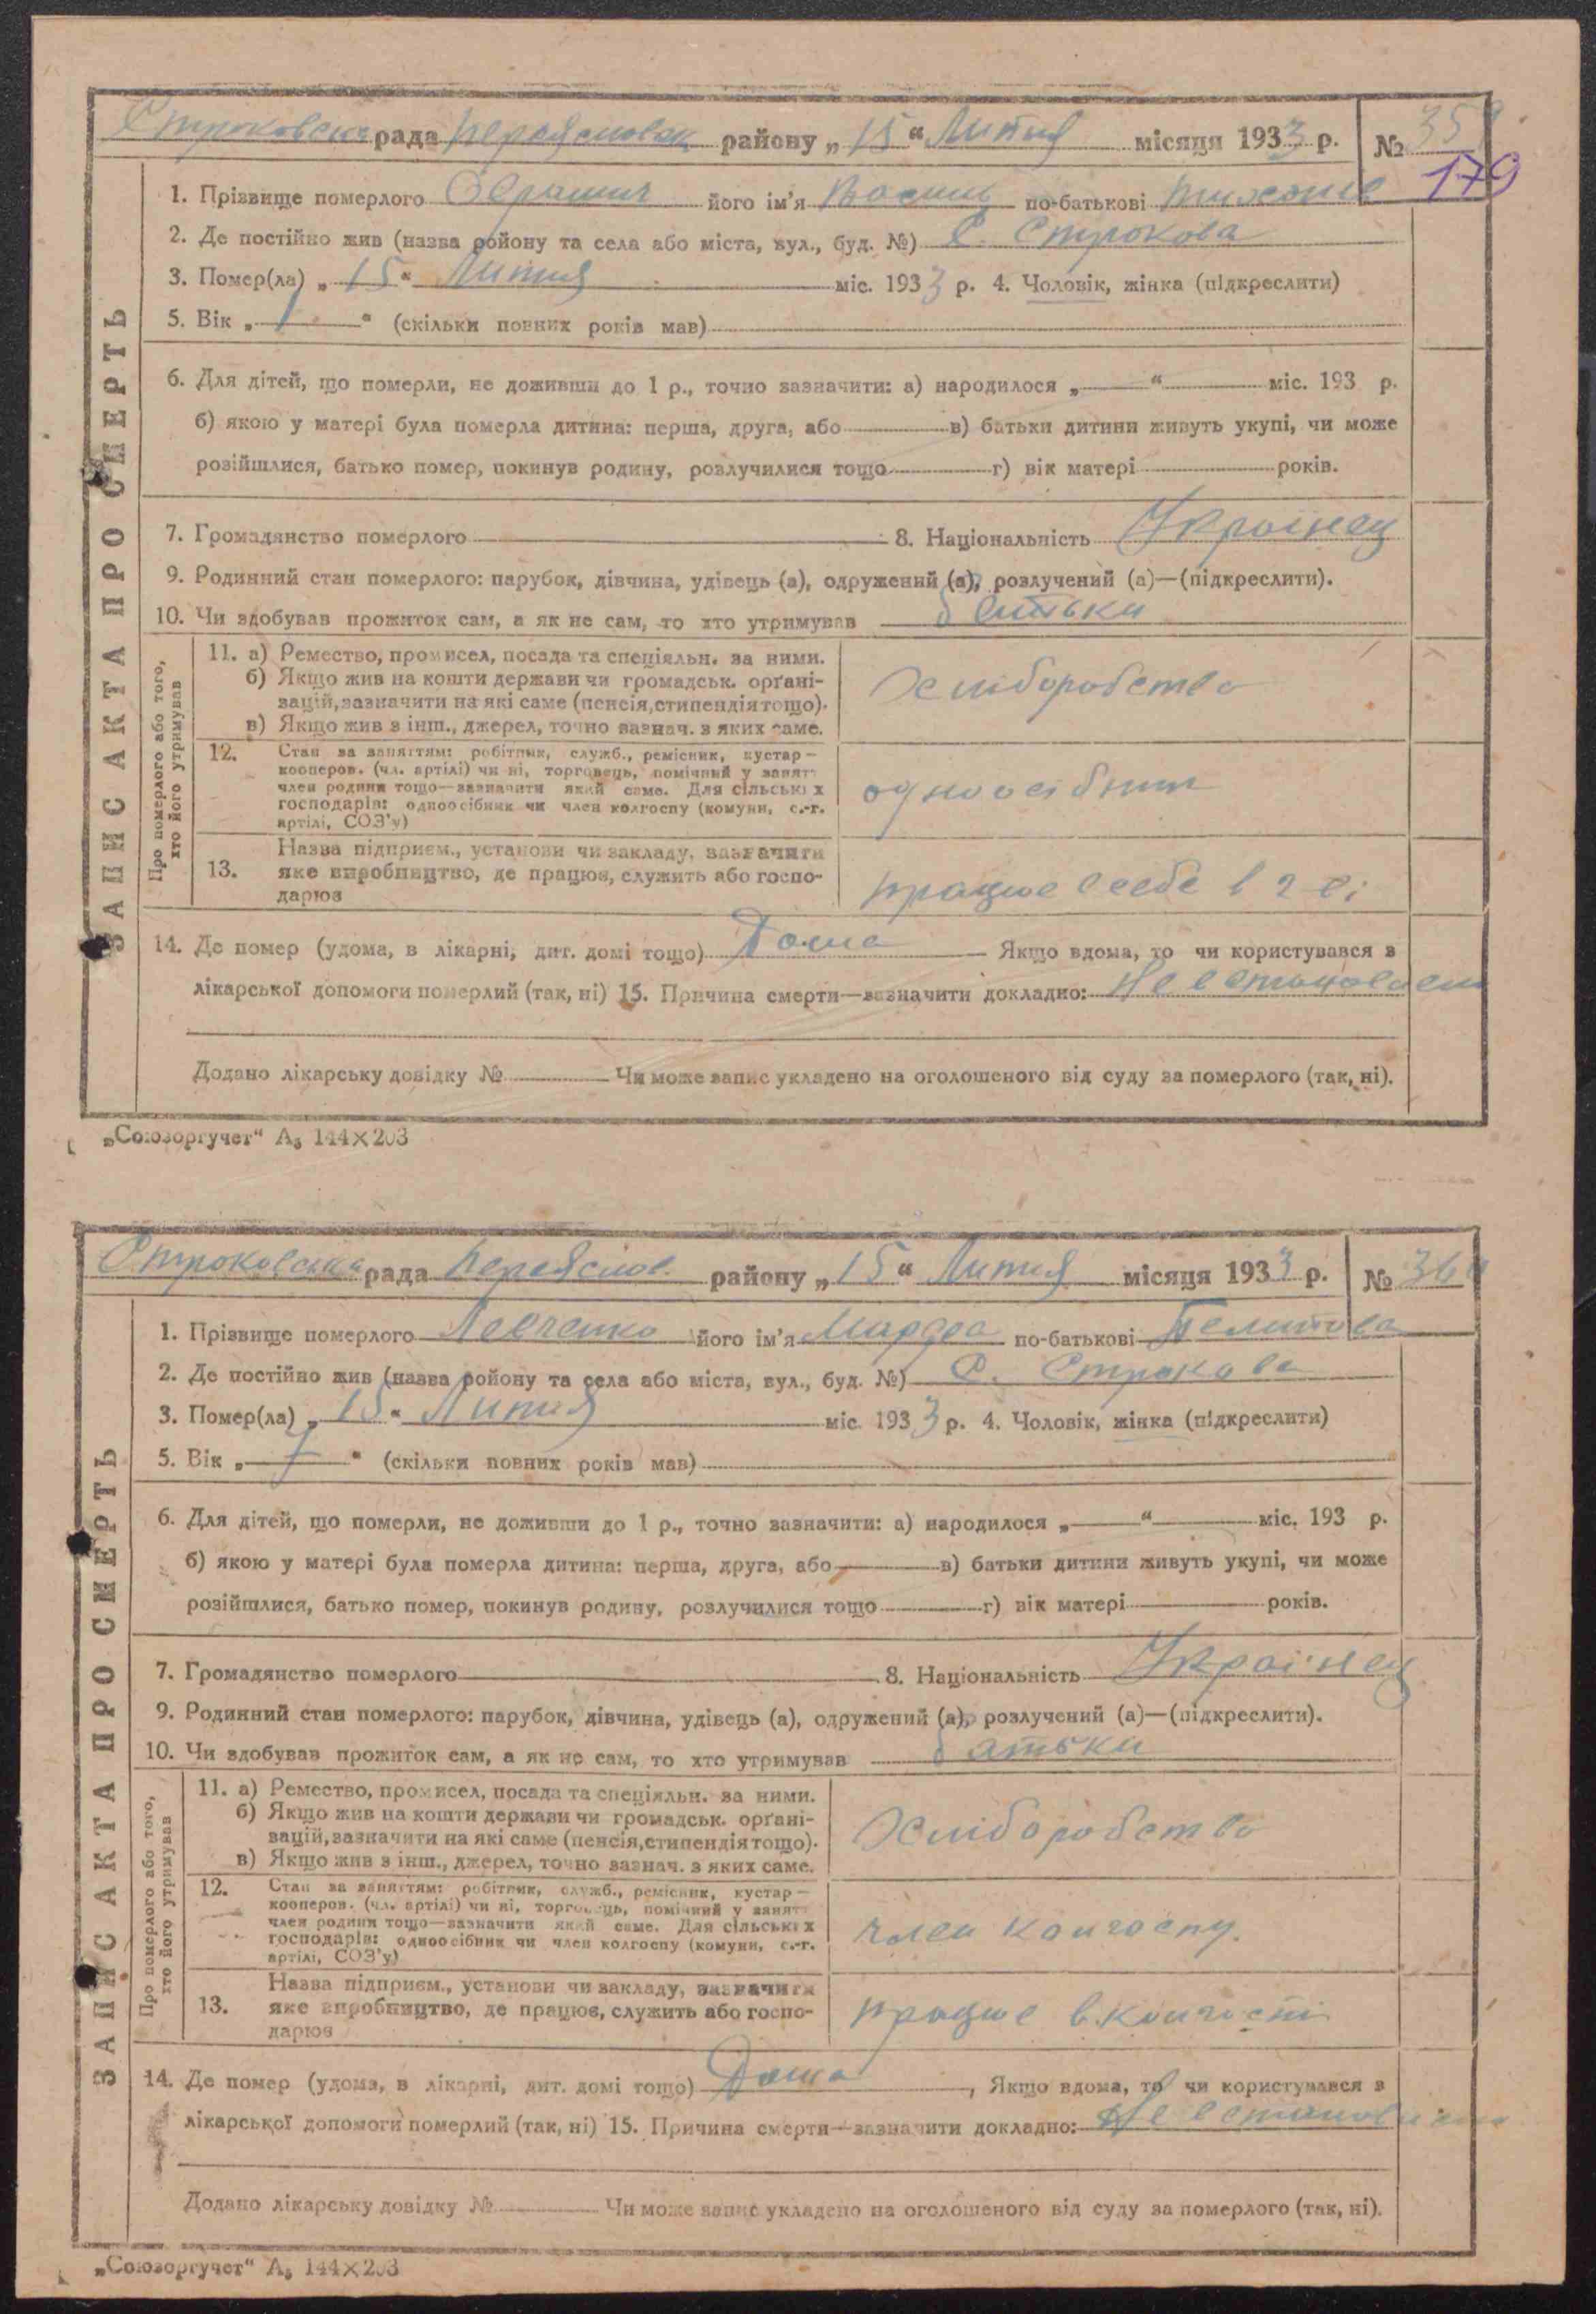 Строковська рада Переяславськ району „15“ Липня місяця 1933 р. № 359
179
1. Прізвище померлого його ім'я Василь по-батькові
2. Де постійно жив (назва ройону та села або міста, вул., буд. №) С. Строкова
3. Помер(ла) „15“ Липня міс. 1933 р. 4. Чоловік, жінка (підкреслити)
5. Вік „1“ (скільки повних років мав)
6. Для дітей, що померли, не доживши до 1 р., точно зазначити: а) народилося „—“ міс. 193 р.
б) якою у матері була померла дитина: перша, друга, або в) батьки дитини живуть укупі, чи може
розійшлися, батько помер, покинув родину, розлучилися тощо г) вік матері років.
7. Громадянство померлого 8. Національність Украінец
9. Родинний стан померлого: парубок, дівчина, удівець (а), одружений (а), розлучений (а)—(підкреслити).
10. Чи здобував прожиток сам, а як не сам, то хто утримував батьки
Про померлого або того, хто його утримував
11. а) Ремество, промисел, посада та спеціяльн. за ними.
б) Якщо жив на кошти держави чи громадськ. орґані-
зацій, зазначити на які саме (пенсія, стипендія тощо).
в) Якщо жив з інш., джерел, точно зазнач. з яких саме.
Хліборобство
12. Стан за заняттям: робітник, служб., ремісник, кустар —
кооперов. (чл. артілі) чи ні, торговець, помічний у занят
член родини тощо—зазначити який саме. Для сільських
господарів: одноосібник чи член колгоспу (комуни, с.-г.
артілі, СОЗ'у)
одноосібник
13. Назва підприєм., установи чи закладу, зазначити
яке виробництво, де працює, служить або госпо-
дарює
працює в себе в г
14. Де помер (удома, в лікарні, дит. домі тощо) Дома Якщо вдома, то чи користувався з
лікарської допомоги померлий (так, ні) 15. Причина смерти—зазначити докладно: Не
Додано лікарську довідку № Чи може запис укладено на оголошеного від суду за померлого (так, ні).
ЗАПИС АКТА ПРО СМЕРТЬ
„Союзоргучет“ А₅ 144×203
Строковська рада Переяслов. району „15“ Липня місяця 1933 р. № 360
1. Прізвище померлого Левченко його ім'я Марфа по-батькові
2. Де постійно жив (назва ройону та села або міста, вул., буд. №) С. Строкова
3. Помер(ла) „15“ Липня міс. 1933 р. 4. Чоловік, жінка (підкреслити)
5. Вік „7“ (скільки повних років мав)
6. Для дітей, що померли, не доживши до 1 р., точно зазначити: а) народилося „—“ міс. 193 р.
б) якою у матері була померла дитина: перша, друга, або в) батьки дитини живуть укупі, чи може
розійшлися, батько помер, покинув родину, розлучилися тощо г) вік матері років.
7. Громадянство померлого 8. Національність Украінец
9. Родинний стан померлого: парубок, дівчина, удівець (а), одружений (а), розлучений (а)—(підкреслити).
10. Чи здобував прожиток сам, а як не сам, то хто утримував батьки
Про померлого або того, хто його утримував
11. а) Ремество, промисел, посада та спеціяльн. за ними.
б) Якщо жив на кошти держави чи громадськ. орґані-
зацій, зазначити на які саме (пенсія, стипендія тощо).
в) Якщо жив з інш., джерел, точно зазнач. з яких саме.
Хліборобство
12. Стан за заняттям: робітник, служб., ремісник, кустар —
кооперов. (чл. артілі) чи ні, торговець, помічний у занят
член родини тощо—зазначити який саме. Для сільських
господарів: одноосібник чи член колгоспу (комуни, с.-г.
артілі, СОЗ'у)
член колгоспу.
13. Назва підприєм., установи чи закладу, зазначити
яке виробництво, де працює, служить або госпо-
дарює
працює в колгоспі
14. Де помер (удома, в лікарні, дит. домі тощо) Дома, Якщо вдома, то чи користувався з
лікарської допомоги померлий (так, ні) 15. Причина смерти—зазначити докладно: Не
Додано лікарську довідку № Чи може запис укладено на оголошеного від суду за померлого (так, ні).
ЗАПИС АКТА ПРО СМЕРТЬ
„Союзоргучет“ А₅ 144×203